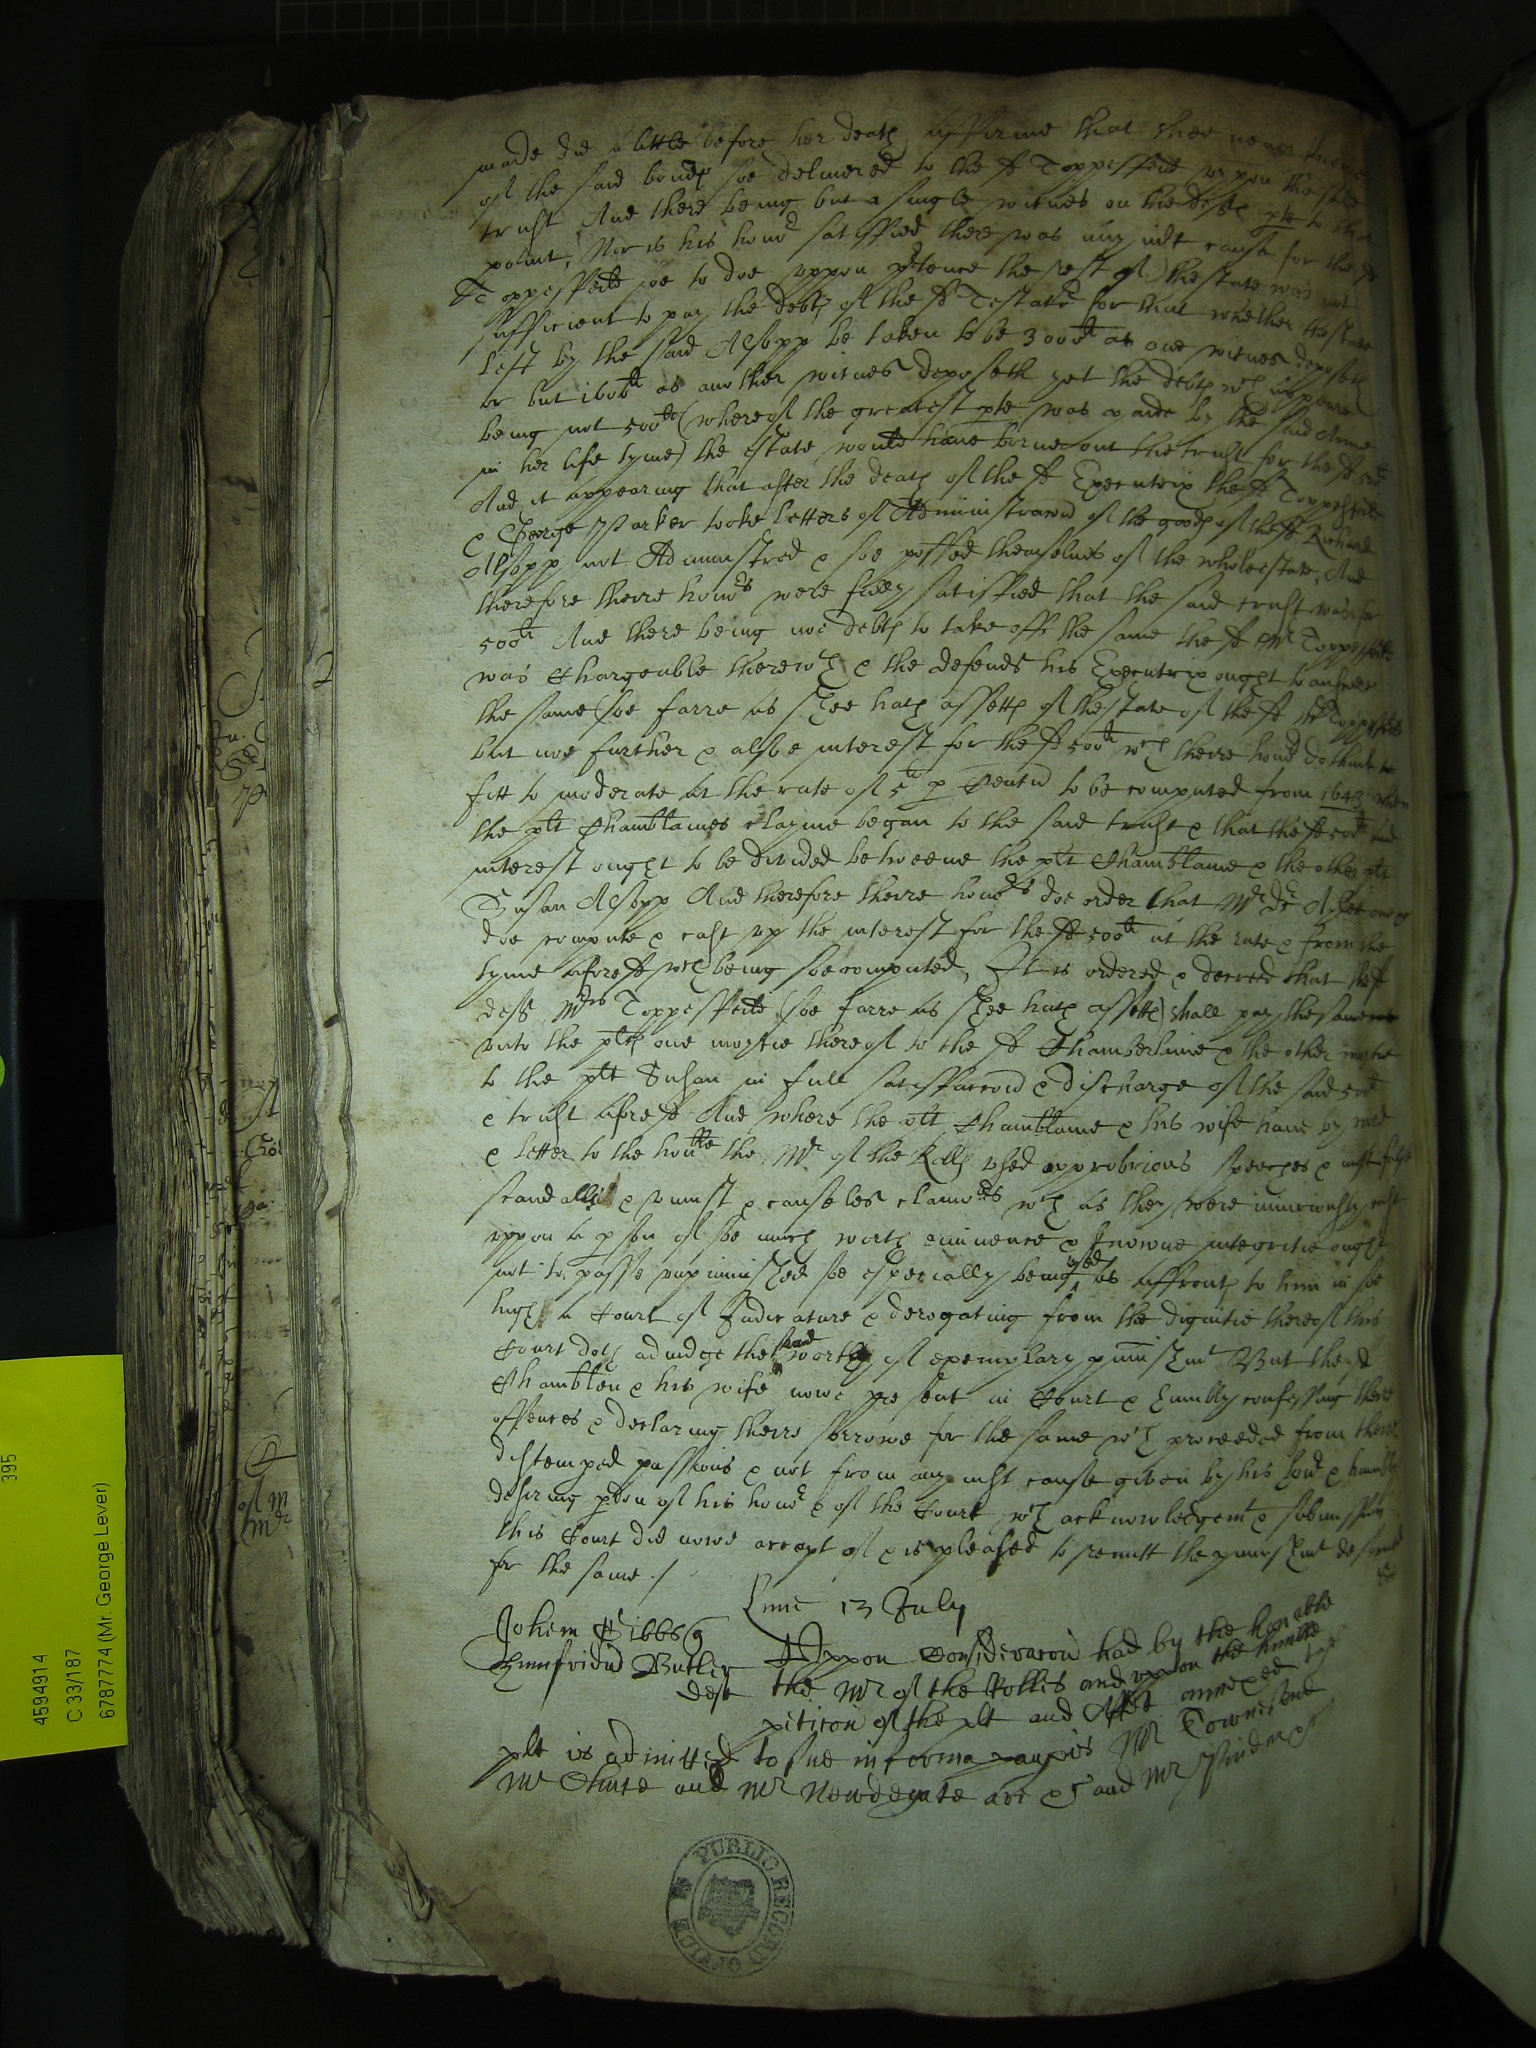 made did a little before her death affirme that shee never
of the said bonds soe delivered to the sd Toppesfeild vppon the said
trust And there being but a single witnes on the defts pte to that
point, Nor is his honor satisffied there was any iust cause for the sd
Toppesfeild soe to doe vppon ptence the rest of thestate was not
sufficient to pay the debts of the sd Testator for that whether thestate
left by the said Alsopp be taken to be 3000li as one witnes deposeth
or but 1600li as another witnes deposeth yet the debts wch appeare
being not 500li (whereof the greatest pte was paide by the said Anne
in her life tyme) the estate would have borne out the trust for the sd 500li
And it appearing that after the death of the sd Executrix the sd Toppesfeild
& George Parker tooke letters of Administracon of the goods of the sd Richard
Alsopp not Administred & soe possed themselves of the whole estate, And
therefore theire honors were fully satisffied that the said trust was for
500li And there being noe debts to take off the same the sd Mr Toppesfeild
was Chargeable therewth & the defendt his Executrix ought to answere
the same (soe farre as shee hath assetts of thestate of the sd Mr Toppesfeild
but noe further & alsoe interest for the sd 500li wch theire honors do thinke
fitt to moderate at the rate of 5li p Centu to be computed from 1643 when
the plt Chamblaines clayme began to the said trust & that the sd 500li and
interest ought to be divided betweene the plt Chamblaine & the other plt
Susan Alsopp And therefore theire honors doe order that Mr Dr
doe compute & cast vp the interest for the sd 500li at the rate & from the
tyme aforesd wch being soe computed, It is ordered & decreed that the sd
deft Mrs Toppesfeild (soe farre as shee hath assetts) shall pay the same
vnto the plts one moytie thereof to the sd Chamberlaine & the other moytie
to the plt Susan in full satisfaccon & discharge of the said 500li
& trust aforesd And where the plt Chamblaine & his wife have by word
& letter to the honble the Mr of the Rolls vsed opprobrious speeches & most false
scandalls & vniust & causeles clamors wch as they were iniuriously cast
vppon a pson of soe much worth eminence & knowne integritie ought
not to passe vnpunished soe especially being vsed as affronts to him in soe
high a Court of Judicature & derogating from the dignitie thereof this
Court doth adiudge the said worthy of exemplary punishmt But the sd
Chamblen & his wife nowe present in Court & humbly confessing there
offences & declaring theire sorrowe for the same wch proceeded from theire
distemped passions & not from any iust cause given by his honor & humbly
desiring pdon of his honor & of the Court wch acknowledgemt & submission
this Court did nowe accept of & is pleased to remitt the punishmt deserved
for the same ./
Lune 13 July
Johem Gibbs q
Humfridu Butler
deft
Vppon Consideracon had by the honorable
the Mr of the Rolles and vppon the humble
peticon of the plt and Affidt annexed the
plt is admitted to sue in forma paupis Mr Townesend
Mr Chute and Mr Newdegate are &c and Mr
PUBLIC RECORD OFFICE
395
4594914
C 33/187
6787774 (Mr. George Lever)